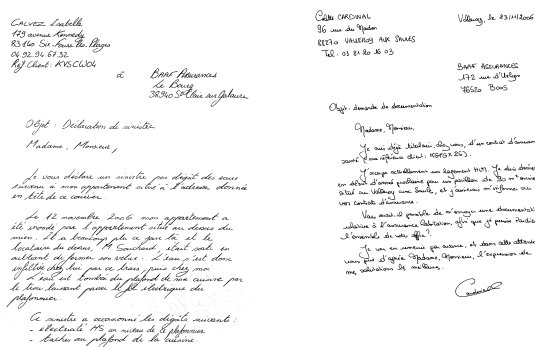 CALVEZ Isabelle
179 avenue Kennedy
83140 Six-Fours-les-Plages
04.92.94.67.32
Réf. Client : KVSCW04
à BAAF Assurances
Le Bourg
38940 St Clair sur Galaure
Objet : Déclaration de sinistre
Madame, Monsieur,
Je vous déclare un sinistre par dégât des eaux
survenu à mon appartement situé à l'adresse donnée
en tête de ce courrier.
Le 12 novembre 2006 mon appartement a
été inondé par l'appartement situé au dessus du
mien. Il a beaucoup plu ce jour là et le
locataire du dessus, M Souchaud, était sorti en
oubliant de fermer son velux. L'eau s'est donc
infiltrée chez lui par ce biais, puis chez moi.
L'eau est tombée du plafond de ma cuisine par
le trou laissant passer le fil électrique du
plafonnier.
Ce sinistre a occasionné les dégâts suivants :
- électricité HS au niveau de ce plafonnier
- taches au plafond de la cuisine.
Colette CARDINAL
96 rue du
88270 VALLEROY AUX SAULES
Tel : 03 81 20 16 03
le 23/11/2006
BAAF ASSURANCES
172 rue
76520 BOOS
Objet : demande de documentation
Madame, Monsieur,
Je suis déjà titulaire, chez vous, d'un contrat d'assurance
santé (ma référence client :
J'occupe actuellement un logement HLM. Je dois
en début d'année prochaine pour un pavillon de
situé au Valleroy aux Saules, et j'aimerais m'informer sur
vos contrats d'assurance.
Vous serait-il possible de m'envoyer une documentation
relative à l'assurance habitation, afin que je puisse étudier
l'ensemble de vos offres ?
Je vous en remercie par avance, et dans cette attente
vous prie d'agréer Madame, Monsieur, l'expression de
mes salutations les meilleures.
Cardinal